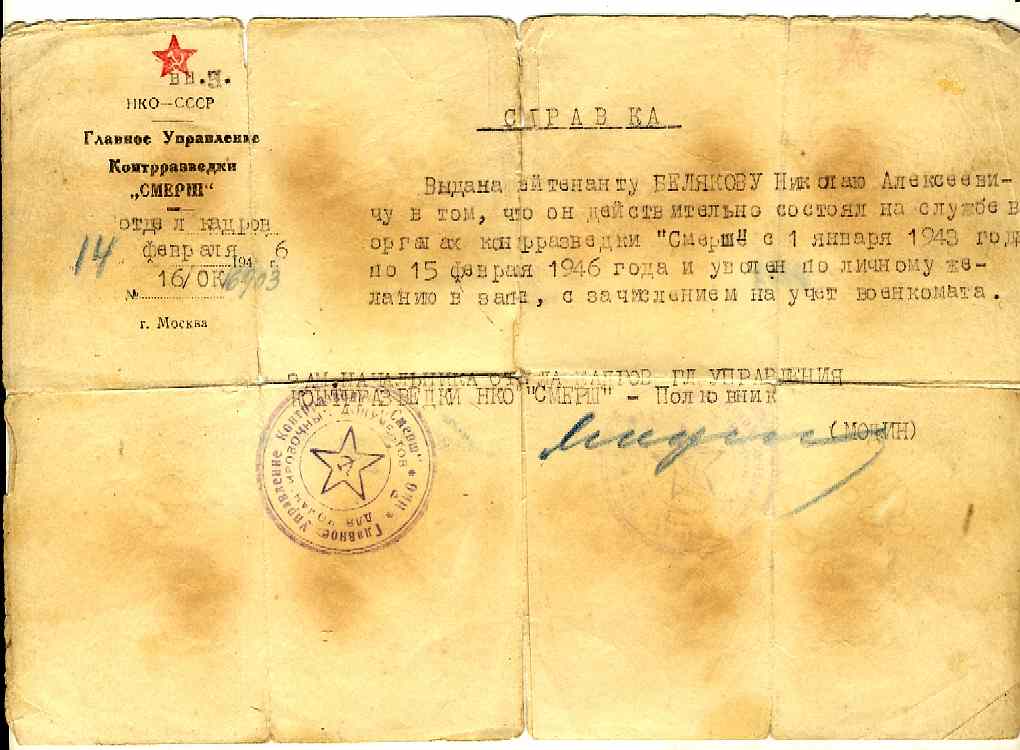 вн.5.
НКО—СССР
Главное Управление
Контрразведки
„СМЕРШ“
отдел кадров
14 февраля 194 6 г.
№ 16/ОК 16903
г. Москва
СПРАВКА
Выдана ейтенанту БЕЛЯКОВУ Николаю Алексееви-
чу в том, что он действительно состоял на службе в
органах контрразведки "Смерш" с 1 января 1943 года
по 15 февраля 1946 года и уволен по личному же-
ланию в запас, с зачислением на учет военкомата.
ЗАМ.НАЧАЛЬНИКА ОТДЕЛА КАДРОВ ГЛ.УПРАВЛЕНИЯ
КОНТРРАЗВЕДКИ НКО "СМЕРШ" - Полковник
(МОДИН)
Главное Управление Контрразведки „Смерш“
для командировочных документов